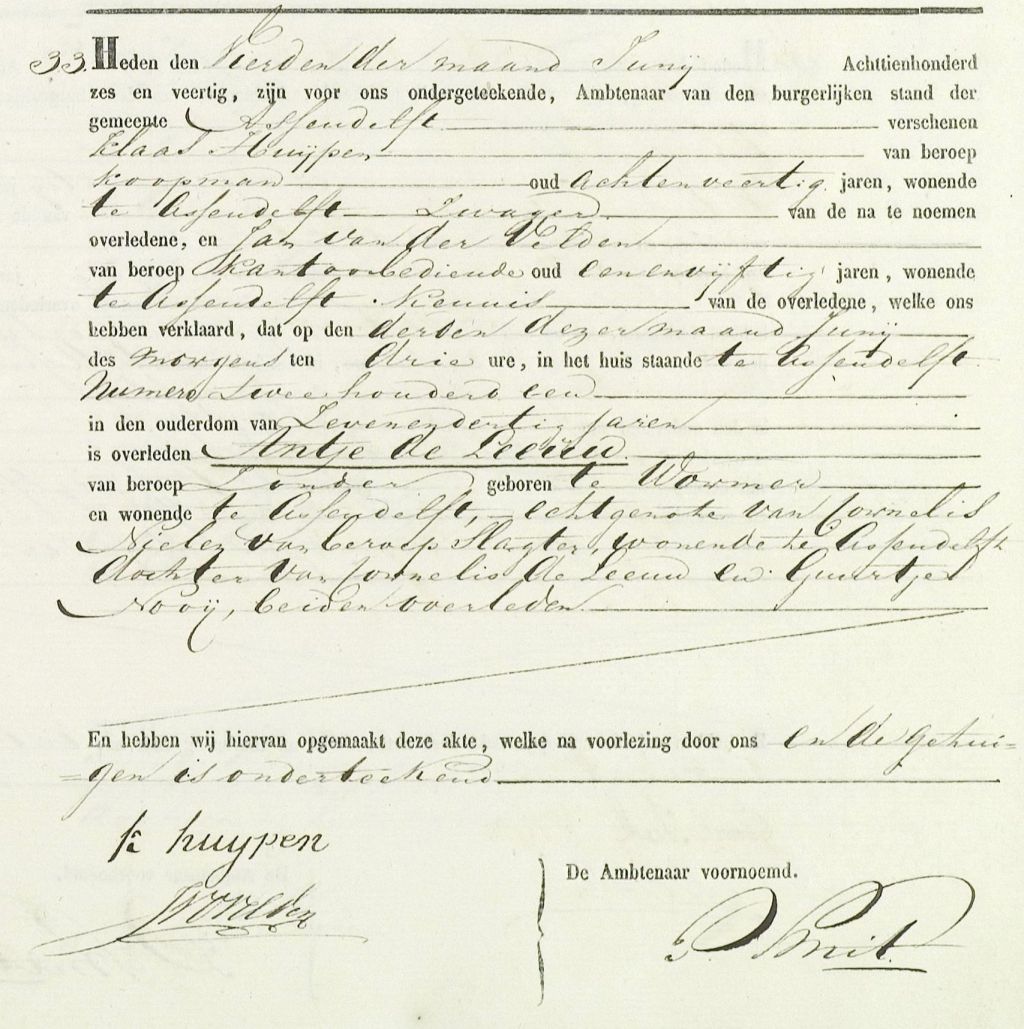 33. Heden den Vierden der maand Junij Achttienhonderd
zes en veertig, zijn voor ons ondergeteekende, Ambtenaar van den burgerlijken stand der
gemeente Assendelft verschenen
Klaas Huijpen van beroep
koopman oud achtenveertig jaren, wonende
te Assendelft Zwager van de na te noemen
overledene, en Jan van der Velden
van beroep kantoorbediende oud eenenvijftig jaren, wonende
te Assendelft Kennis van de overledene, welke ons
hebben verklaard, dat op den derden dezer maand Junij
des morgens ten drie ure, in het huis staande te Assendelft
Numero twee honderd een
in den ouderdom van Zevenendertig jaren
is overleden Antje de Leeuw
van beroep Zonder geboren te Wormer
en wonende te Assendelft, echtgenote van Cornelis
van beroep Slagter, wonende te Assendelft
dochter van Cornelis de Leeuw en Guurtje
Nooij, beiden overleden
En hebben wij hiervan opgemaakt deze akte, welke na voorlezing door ons en de getui=
=gen is onderteekend
k huypen
JVDVelden
De Ambtenaar voornoemd.
P Smit